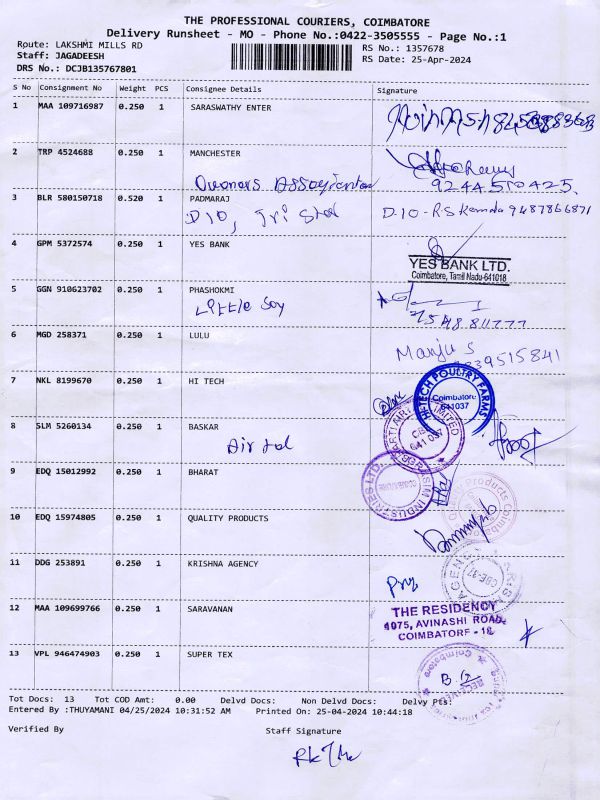 THE PROFESSIONAL COURIERS, COIMBATORE
Delivery Runsheet - MO - Phone No.:0422-3505555 - Page No.:1
Route: LAKSHMI MILLS RD RS No.: 1357678
Staff: JAGADEESH RS Date: 25-Apr-2024
DRS No.: DCJB135767801
S No Consignment No Weight PCS Consignee Details Signature
1 MAA 109716987 0.250 1 SARASWATHY ENTER
2 TRP 4524688 0.250 1 MANCHESTER
Owners 9244510425.
3 BLR 580150718 0.520 1 PADMARAJ
D10, D-10-RS 9487866871
4 GPM 5372574 0.250 1 YES BANK
YES BANK LTD.
Coimbatore, Tamil Nadu-641018
5 GGN 910623702 0.250 1 PHASHOKMI
Little Soy
7548811777
6 MGD 258371 0.250 1 LULU
Manju S
9839515841
7 NKL 8199670 0.250 1 HI TECH
HI-TECH POULTRY FARMS
Coimbatore
641037
8 SLM 5260134 0.250 1 BASKAR
Airtel
641 037
9 EDQ 15012992 0.250 1 BHARAT
GRASIM INDUSTRIES LTD.
10 EDQ 15974805 0.250 1 QUALITY PRODUCTS
Products Coimbatore
11 DDG 253891 0.250 1 KRISHNA AGENCY
CBE-37
12 MAA 109699766 0.250 1 SARAVANAN
THE RESIDENCY
1075, AVINASHI ROAD,
COIMBATORE - 18
13 VPL 946474903 0.250 1 SUPER TEX
Coimbatore
Tot Docs: 13 Tot COD Amt: 0.00 Delvd Docs: Non Delvd Docs: Delvy Pts:
Entered By :THUYAMANI 04/25/2024 10:31:52 AM Printed On: 25-04-2024 10:44:18
Verified By Staff Signature